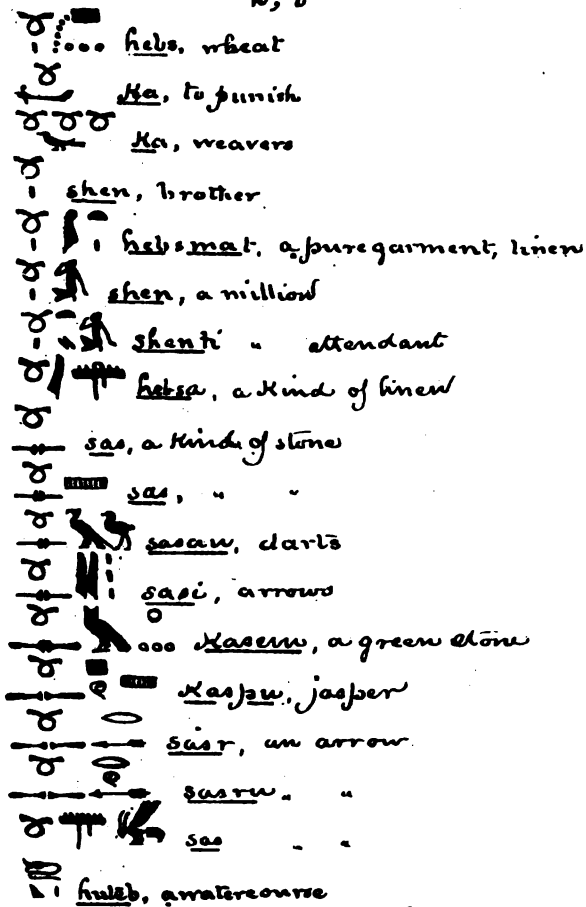 hebs, wheat
Ka, to punish
Ka, weavers
shen, brother
hebsmat, a pure garment, linen
shen, a million
shenti " attendant
hebsa, a kind of linen
sas, a kind of stone
sas, " "
sasau, darts
sasi, arrows
Kasem, a green stone
Kaspu, jasper
sasr, an arrow
sasru " "
sas " "
huleb, a watercourse